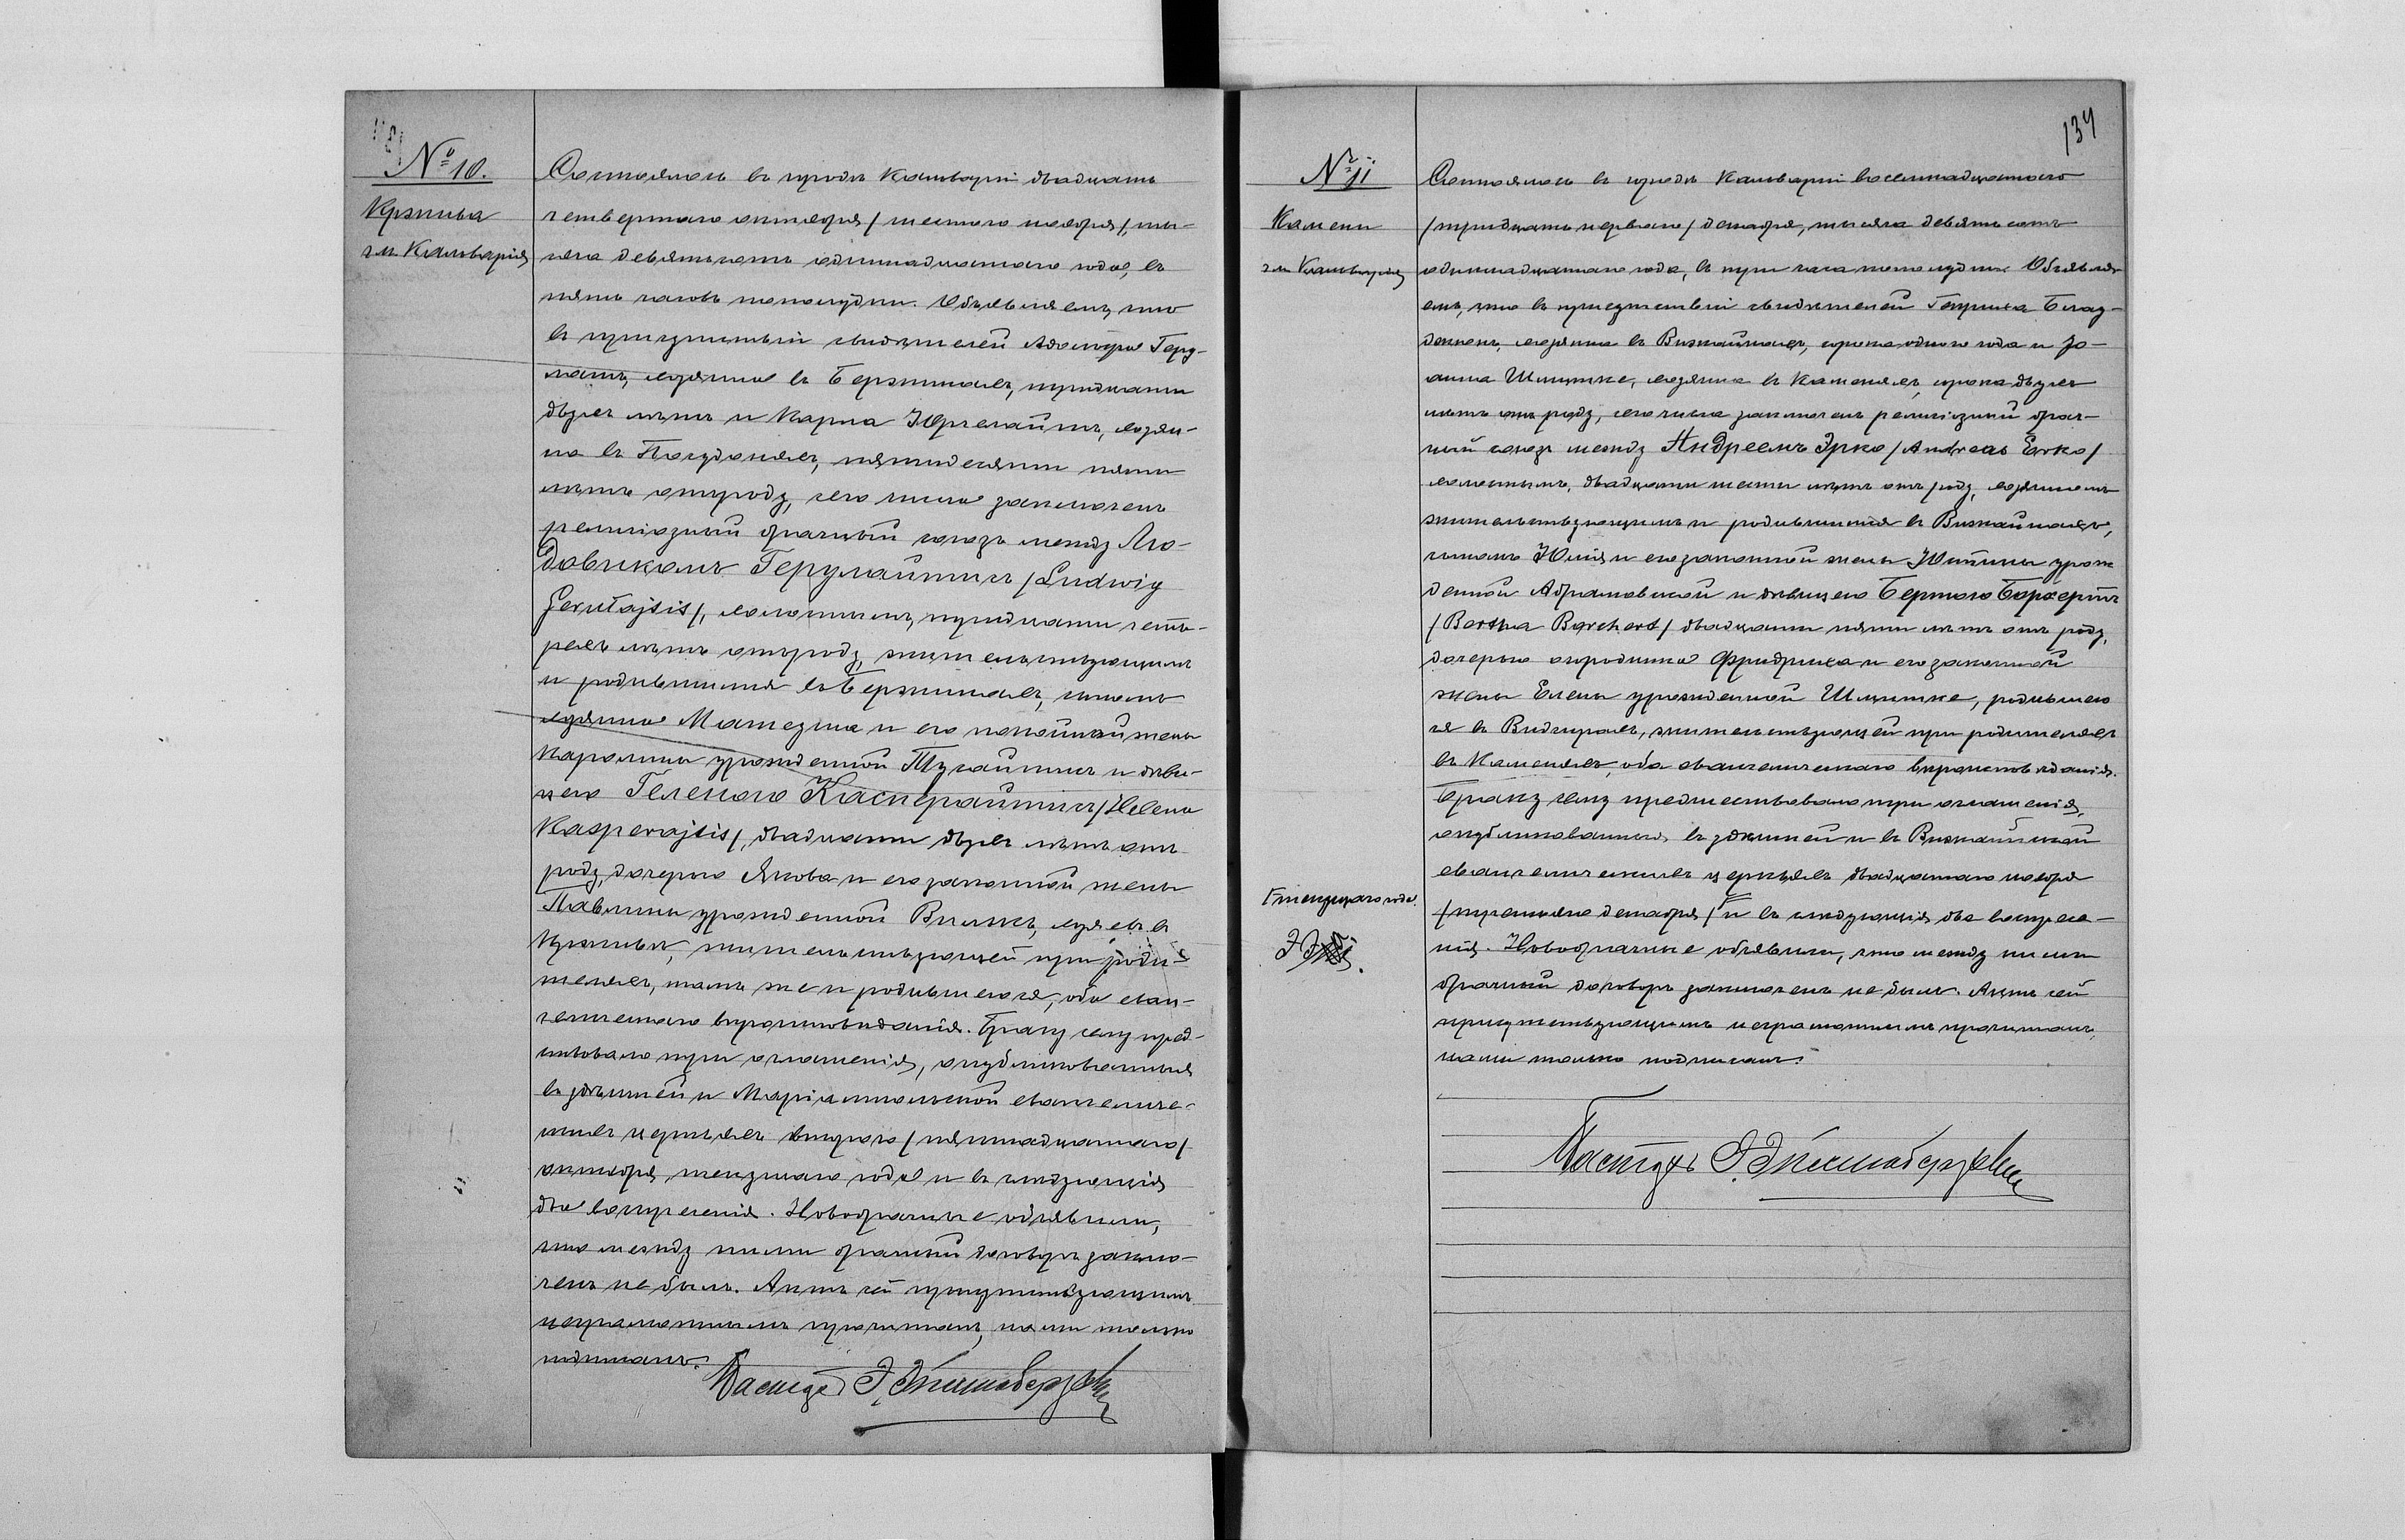 № 10.
Кржива
гм. Кальварія
Состоялось въ городѣ Кальваріи двадцать
четвертаго октября /шестого ноября/, ты-
сяча девятьсотъ одиннадцатаго года, въ
пять часовъ пополудни. Объявляемъ, что
въ присутствіи свидѣтелей Адольфа Геру-
латъ, хозяина въ Бержинахъ, тридцати
двухъ лѣтъ и Карла Юргелайтъ, хозяи-
на въ, пятидесяти пяти
лѣтъ отъ роду, сего числа заключенъ
религіозный брачный союзъ между Лю-
довикомъ Герулайтисъ /Ludwig
Gerułajtis/, холостымъ, тридцати четы-
рехъ лѣтъ отъ роду, жительствующимъ
и родившимся въ Бержинахъ, сыномъ
хозяина Матеуша и его покойной жены
Каролины урожденной и дѣви-
цею Геленою Касперайтисъ /Helena
Kasperajtis/, двадцати двухъ лѣтъ отъ
роду, дочерью Якова и его законной жены
Павлины урожденной, хозяевъ въ
Кржива, жительствующей при роди-
теляхъ, тамъ же и родившеюся, оба еван-
гелическаго вѣроисповѣданія. Браку сему пред-
шествовало три оглашенія, опубликованныя
въ здѣшней и Маріампольской евангеличе-
скихъ церквяхъ второго /пятнадцатаго/
октября текущаго года и въ слѣдующія
два воскресенія. Новобрачные объявили,
что между ними брачный договоръ заклю-
ченъ не былъ. Актъ сей присутствующимъ
неграмотнымъ прочитанъ, нами только
подписанъ.
Пасторъ Э.
134
№ 11
Камени
гм. Кальварія
Состоялось въ городѣ Кальваріи восемнадцатаго
/тридцать перваго/ декабря, тысяча девятьсотъ
одиннадцатаго года, въ три часа пополудни. Объявля-
емъ, что въ присутствіи свидѣтелей Генриха
, хозяина въ Вижайнахъ, сорока одного года и Іо-
анна Шмитке, хозяина въ Каменяхъ, сорока двухъ
лѣтъ отъ роду, сего числа заключенъ религіозный брач-
ный союзъ между Андреемъ Эрко /Andreas Erko/
холостымъ, двадцати шести лѣтъ отъ роду, хозяиномъ
жительствующимъ и родившимся въ Вижайнахъ,
сыномъ Юлія и его законной жены Юстины урож-
денной Абрамовской и дѣвицею Бертою Борхертъ
/Bertha Borchert/ двадцати пяти лѣтъ отъ роду,
дочерью огородника Фридриха и его законной
жены Елены урожденной Шмитке, родившею-
ся въ, жительствующей при родителяхъ
въ Каменяхъ, оба евангелическаго вѣроисповѣданія.
Браку сему предшествовало три оглашенія,
опубликованныя въ здѣшней и въ Вижайнской
евангелическихъ церквяхъ двадцатаго ноября
/третьяго декабря/ и въ слѣдующія два воскресе-
нія. Новобрачные объявили, что между ними
брачный договоръ заключенъ не былъ. Актъ сей
присутствующимъ неграмотнымъ прочитанъ,
нами только подписанъ.
Г текущаго года.
Пасторъ Э.